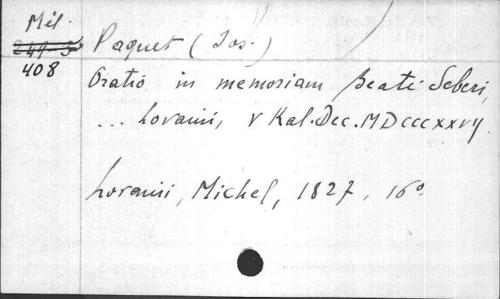 Mél.
408
Paquet (Jos.)
Oratio in memoriam Beati Seberi,
... Lovanii, V Kal. Dec. MDCCCXXVIJ.
Lovanii, Michel, 1827, 16°